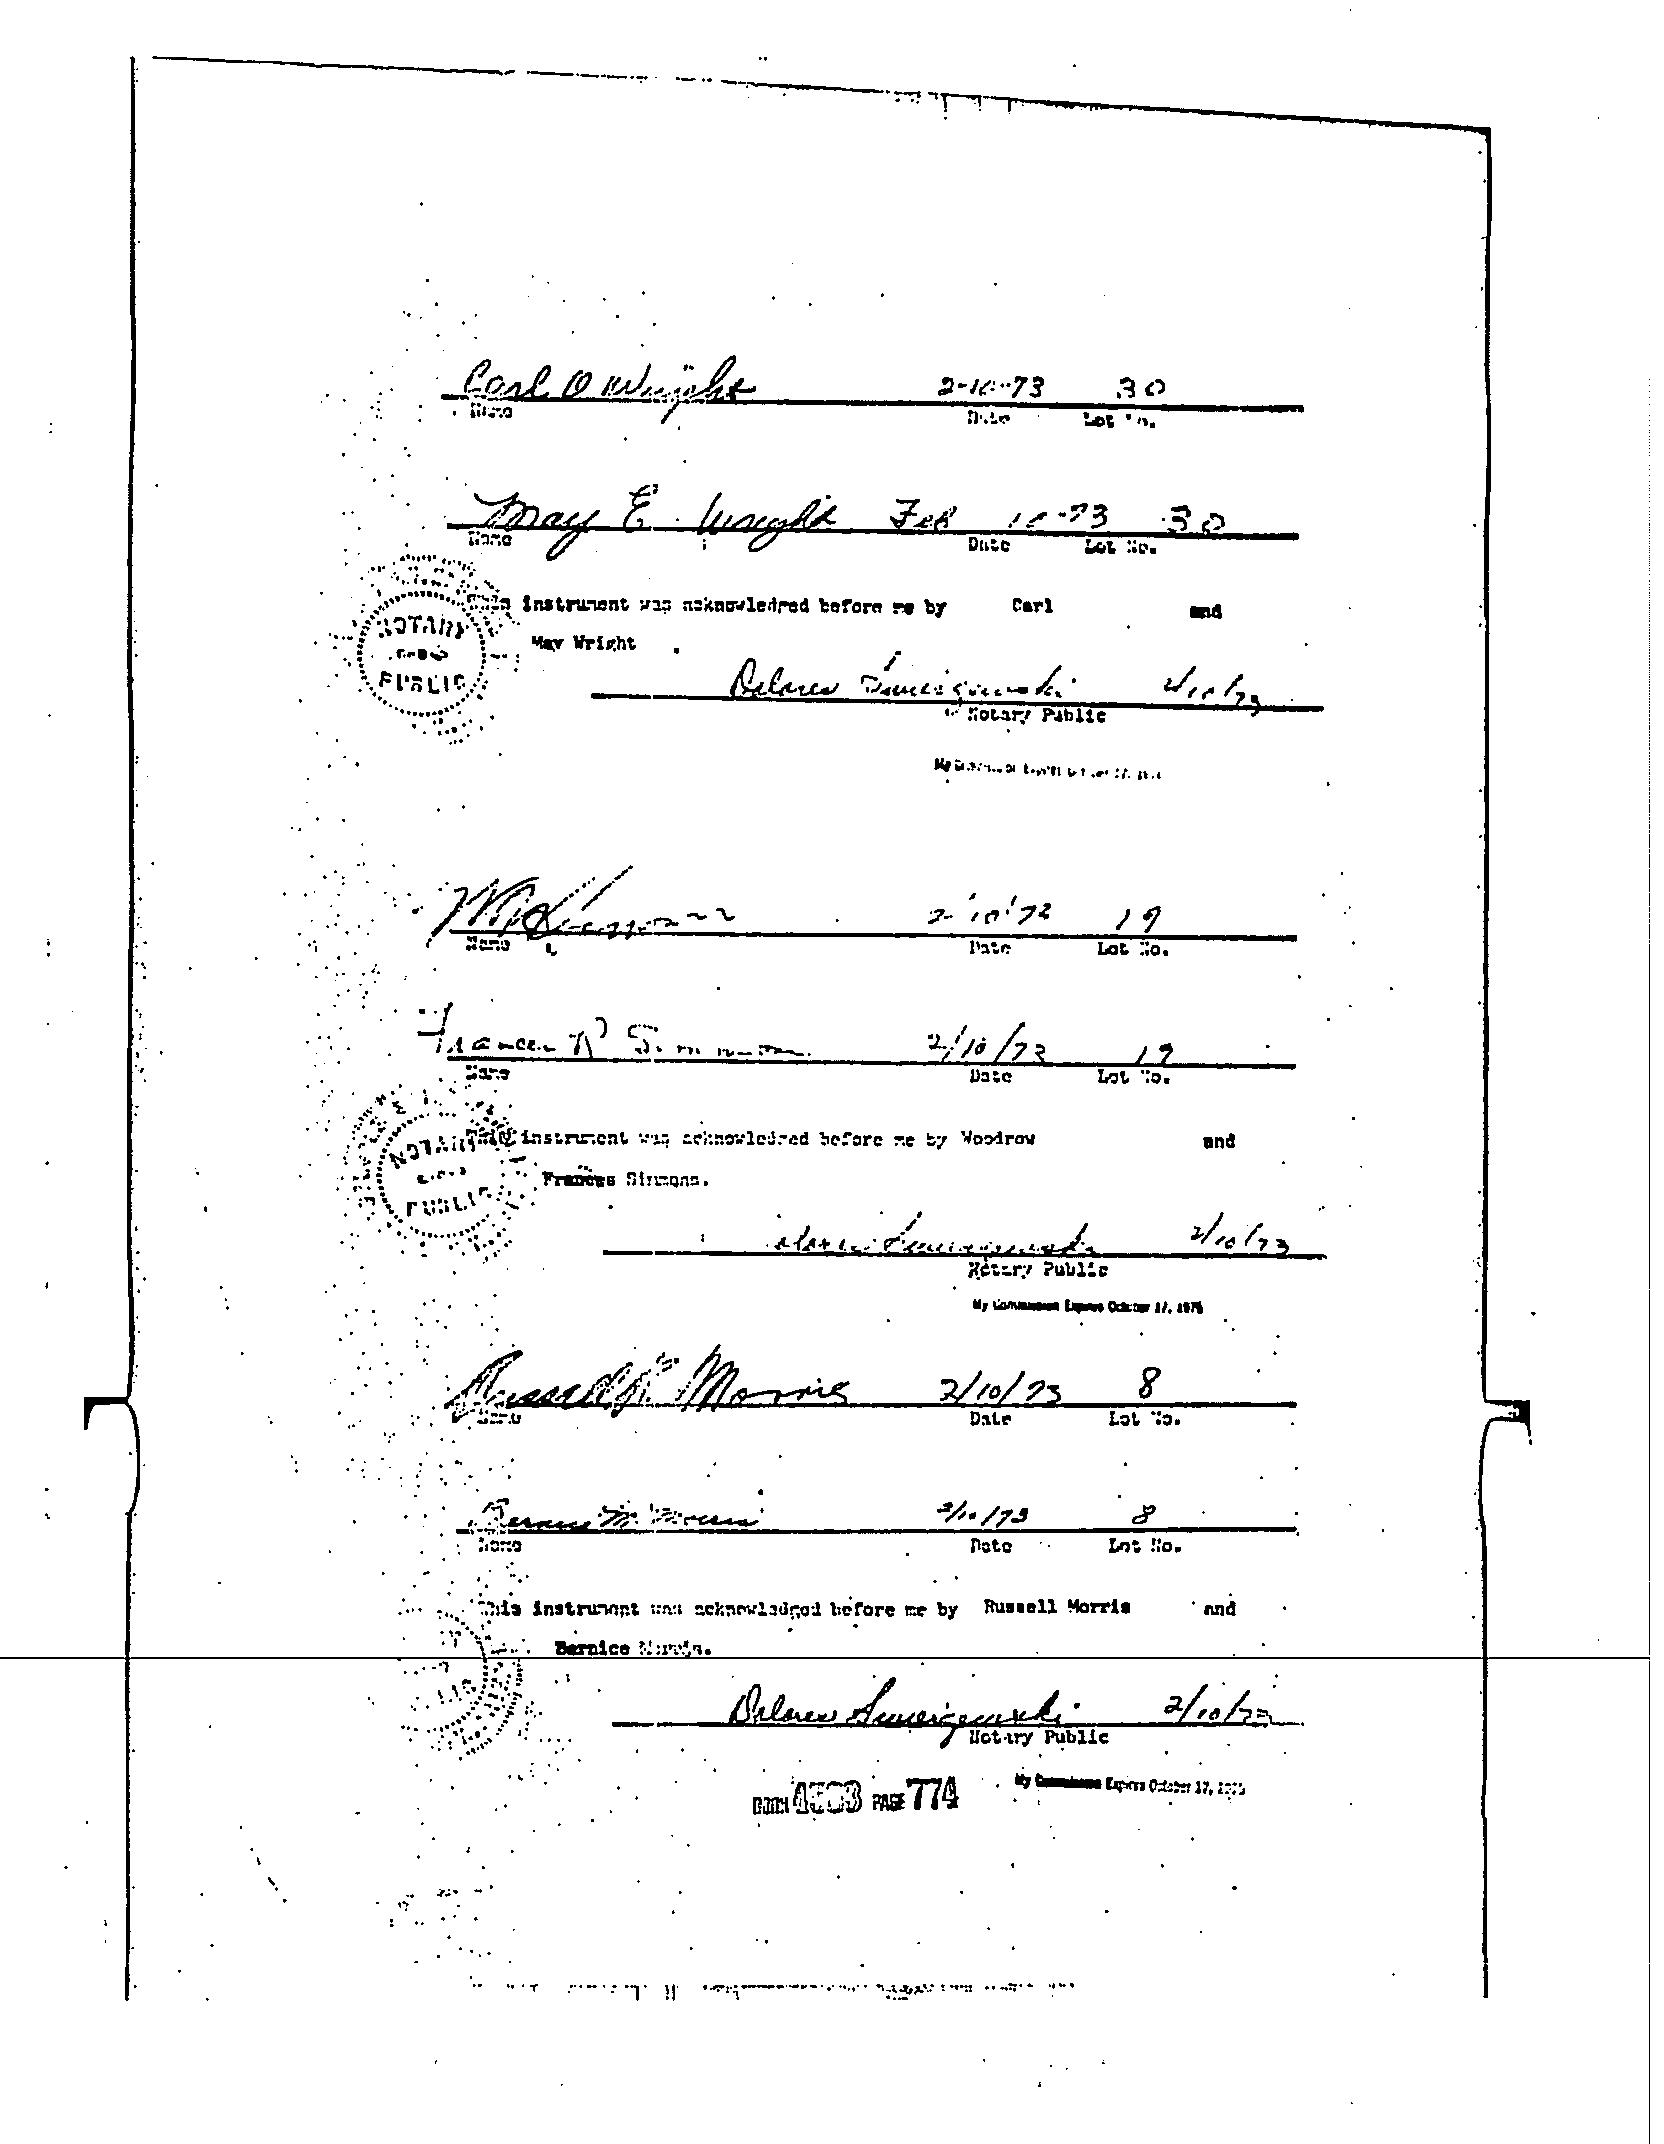 Carl O Wright 2-10-73 30
Name Date Lot No.
May E. Wright Feb 10-73 30
Name Date Lot No.
NOTARY
PUBLIC
This instrument was acknowledged before me by Carl and
May Wright .
Delores 2/10/73
Notary Public
2-10-73 19
Name Date Lot No.
Frances R Simmons 2/10/73 19
Name Date Lot No.
NOTARY
PUBLIC
This instrument was acknowledged before me by Woodrow and
Frances Simmons.
2/10/73
Notary Public
My Commission Expires October 17, 1975
Russell R. Morris 2/10/73 8
Name Date Lot No.
Bernice M. Morris 2/10/73 8
Name Date Lot No.
This instrument was acknowledged before me by Russell Morris and
Bernice Morris.
Delores 2/10/73
Notary Public
My Commission Expires October 17, 1975
BOOK PAGE 774